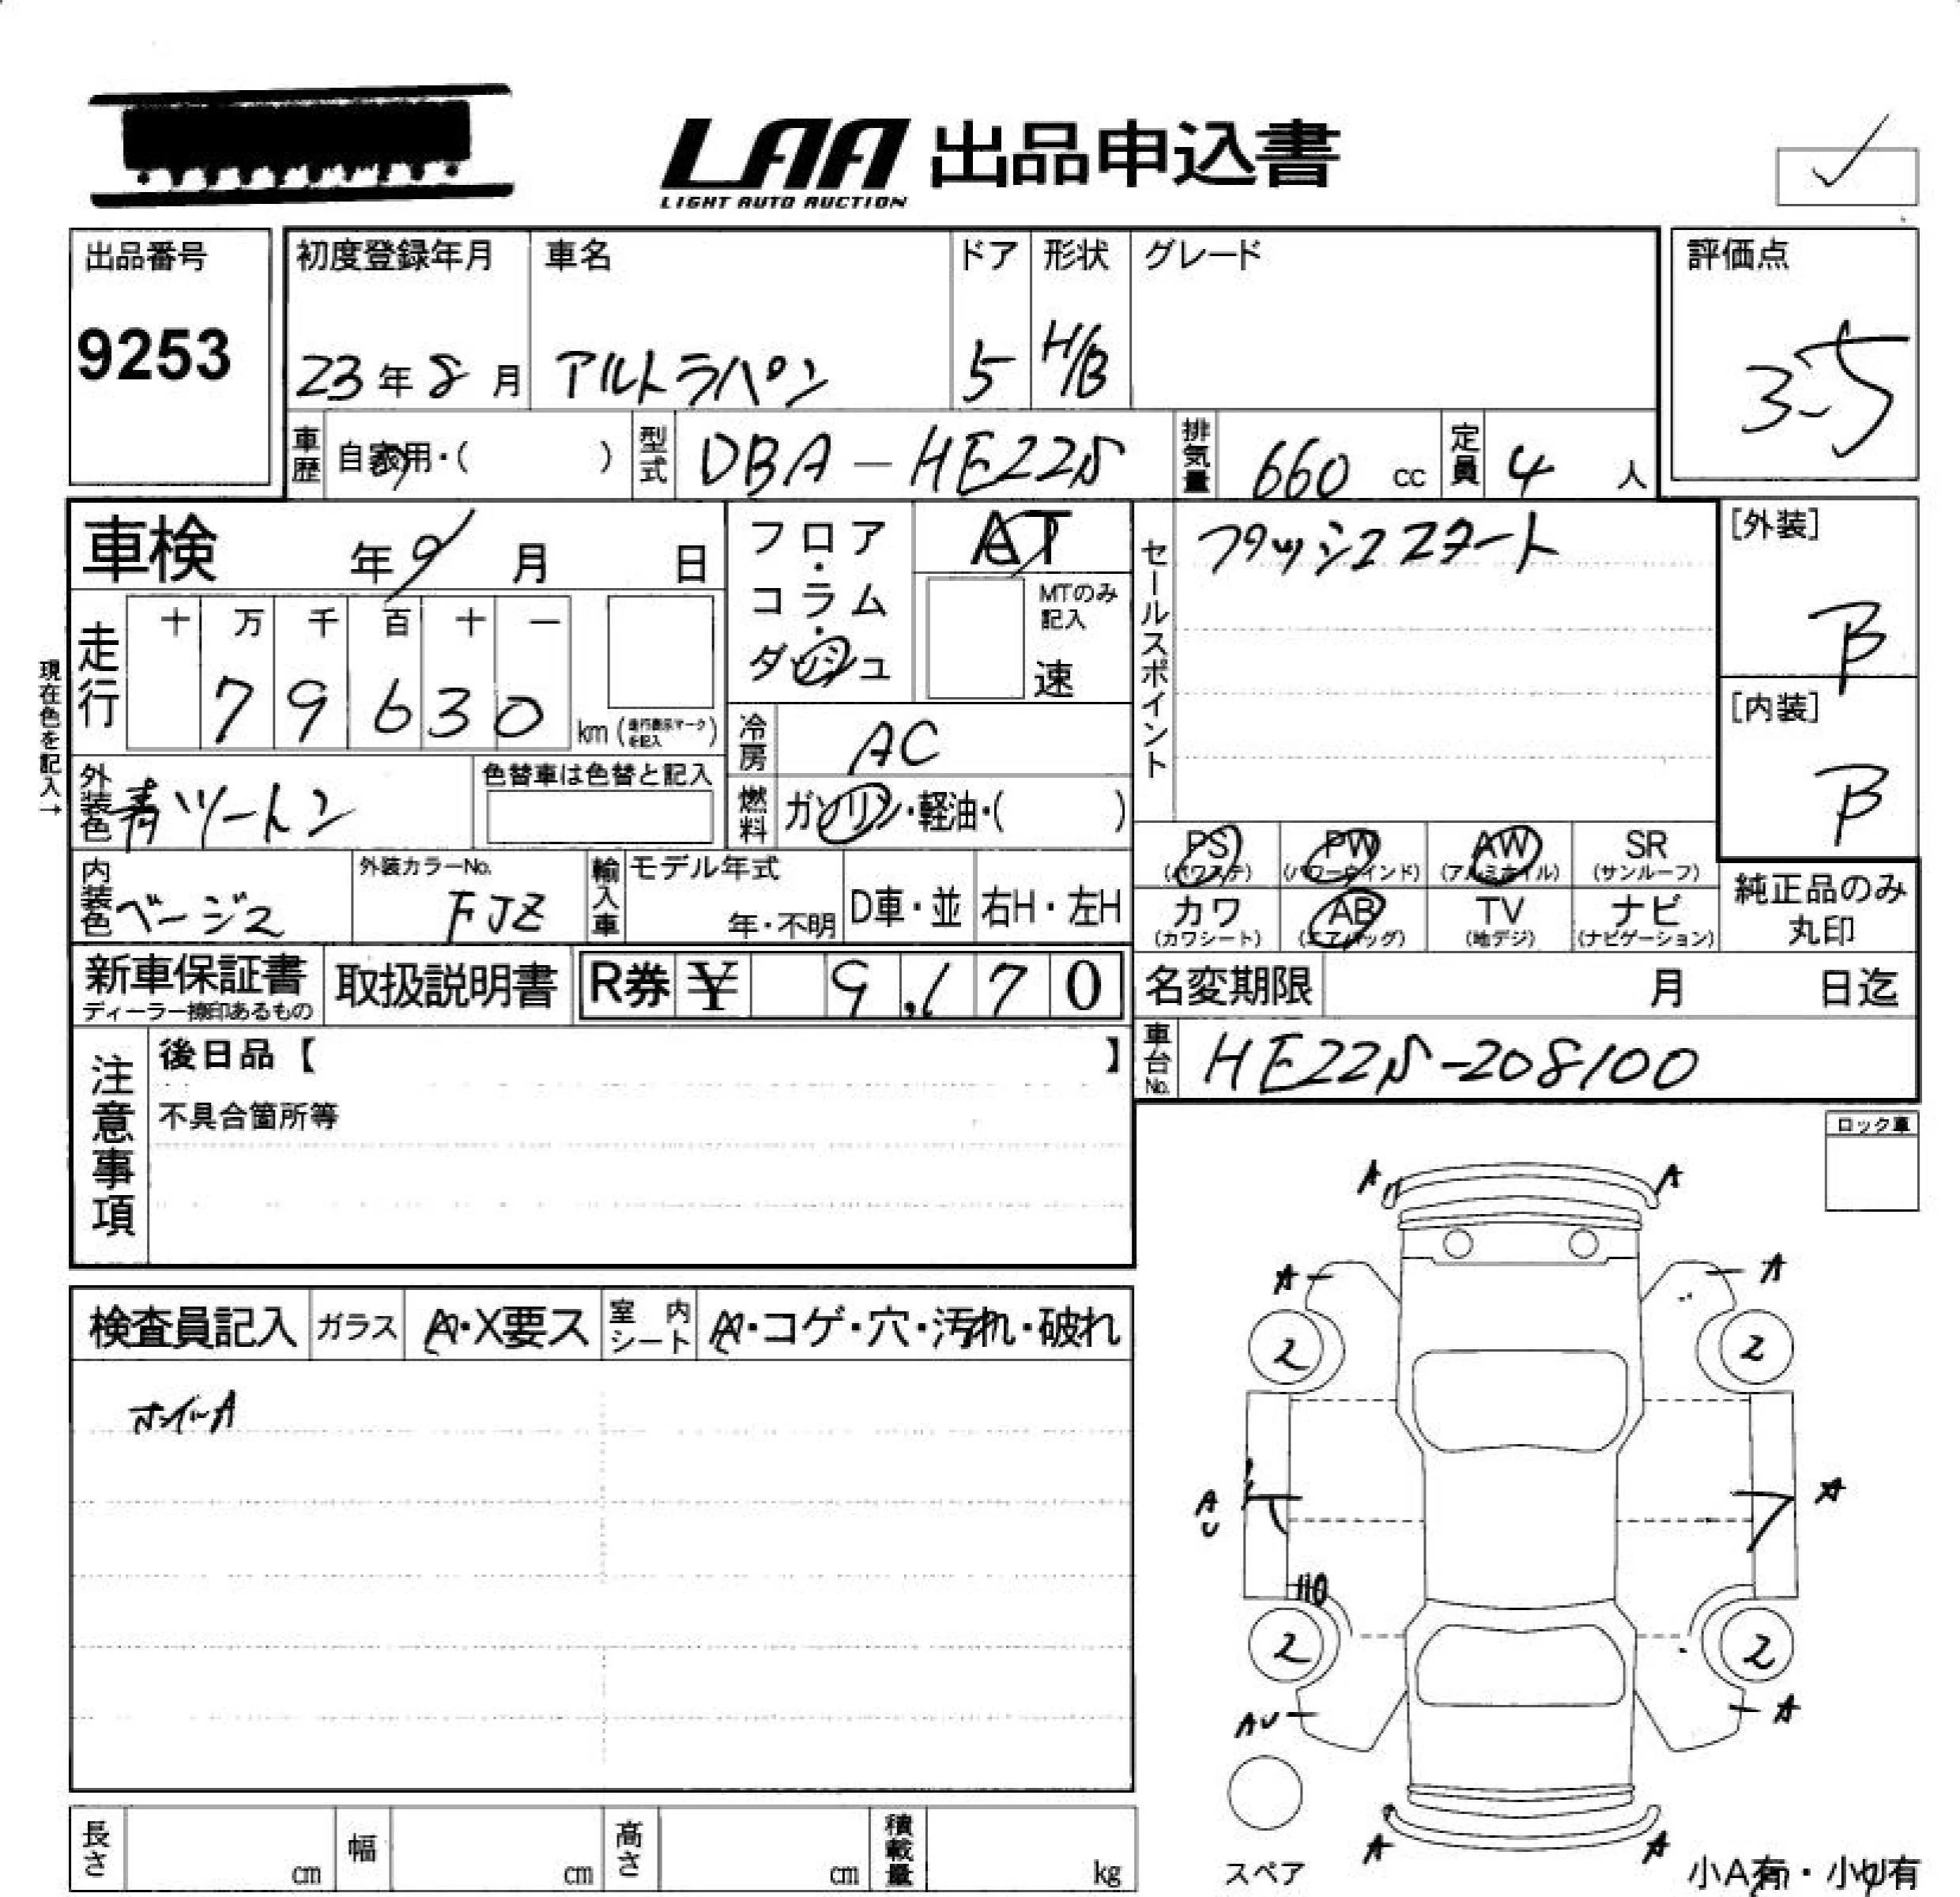 LAA 出品申込書
LIGHT AUTO AUCTION
出品番号
9253
初度登録年月
23年8月
車名
アルトラパン
ドア
5
形状
H/B
グレード
評価点
3.5
車歴
自家用・( )
型式
DBA-HE22S
排気量
660 cc
定員
4 人
車検 年 9 月 日
フロア・コラム・ダッシュ
AT
MTのみ記入
速
セールスポイント
プッシュスタート
[外装]
B
[内装]
B
走行
十 万 千 百 十 一
7 9 6 3 0
km (走行表示マークを記入)
現在色を記入→
外装色
青ツートン
色替車は色替と記入
冷房
AC
燃料
ガソリン・軽油・( )
PS SR PW AW
(パワステ) (パワーウインド) (アルミホイル) (サンルーフ)
カワ AB TV ナビ
(カワシート) (エアバッグ) (地デジ) (ナビゲーション)
純正品のみ丸印
内装色
ベージュ
外装カラーNo.
FJZ
輸入車
モデル年式
年・不明
D車・並
右H・左H
新車保証書
ディーラー捺印あるもの
取扱説明書
R券 ¥ 9,170
名変期限 月 日迄
車台No.
HE22S-208100
注意事項
後日品【 】
不具合箇所等
ロック車
検査員記入
ガラス
A・X要ス
室内シート
A・コゲ・穴・汚れ・破れ
ホイールA
A A
A A
2 2
A
U
A
2 2
AU A
A A
スペア
小A有・小U有
長さ cm
幅 cm
高さ cm
積載量 kg